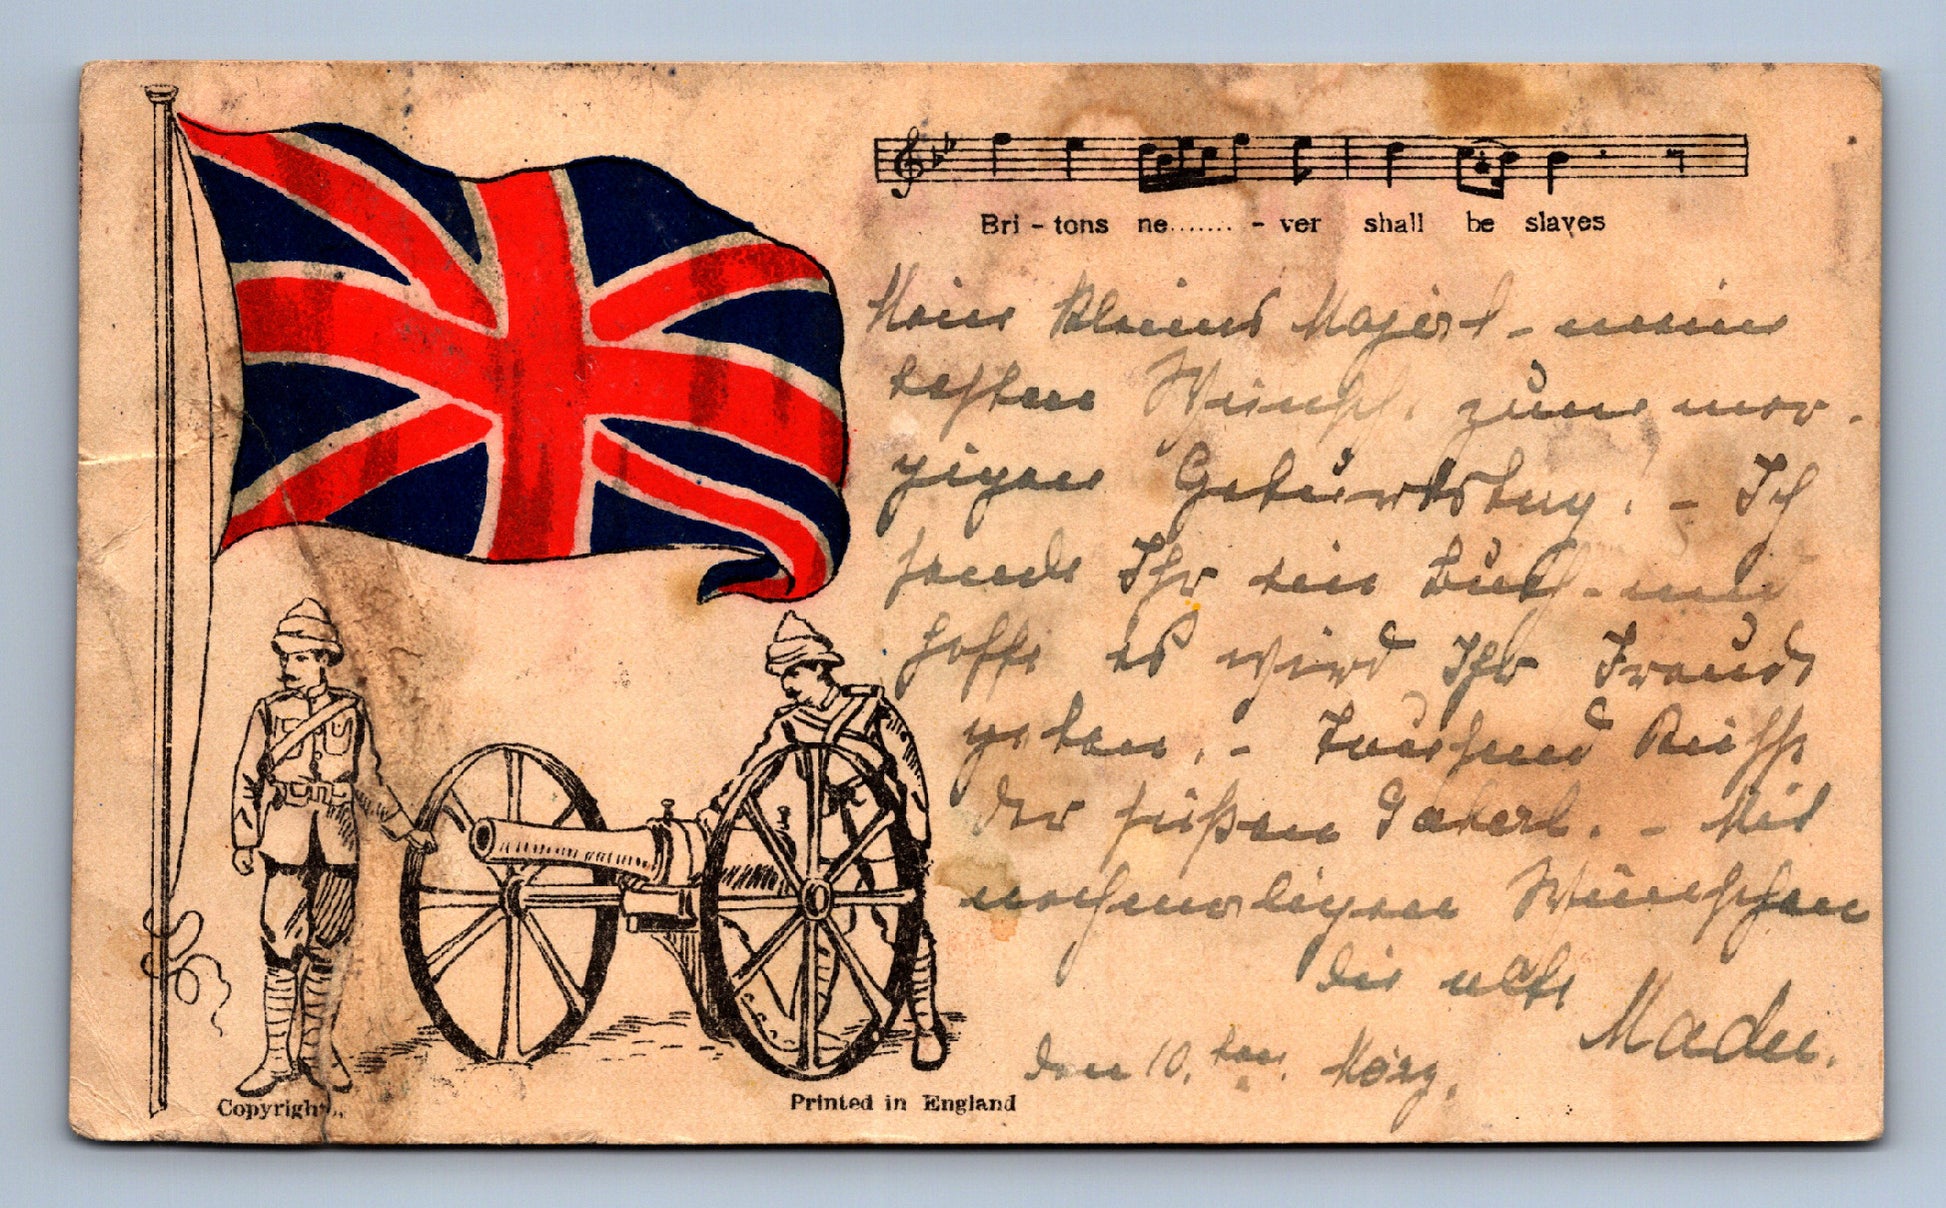 Bri - tons ne....... - ver shall be slaves
Mein kleines Majerl - meine
besten Wünsche zum mor-
gigen Geburtstag. - Ich
sende Ihr ein Buch - und
hoffe es wird Ihr Freude
geben. - Tausend Küsse
der süßen Gakerl. - Mit
nochmaligen Wünschen
die alte
Madee.
den 10. ten März.
Copyright.
Printed in England